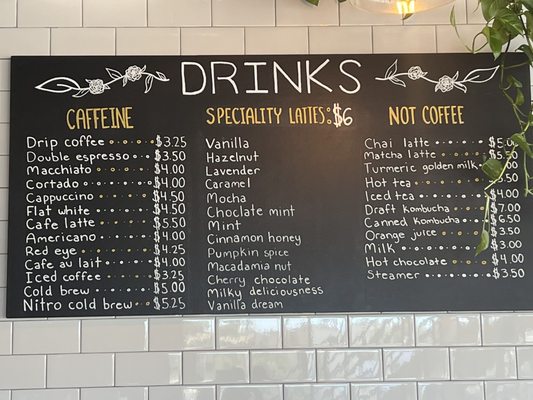 DRINKS
CAFFEINE
Drip coffee $3.25
Double espresso $3.50
Macchiato $4.00
Cortado $4.00
Cappuccino $4.50
Flat white $4.50
Cafe latte $5.50
Americano $4.00
Red eye $4.25
Cafe au lait $4.00
Iced coffee $3.25
Cold brew $5.00
Nitro cold brew $5.25
SPECIALITY LATTES: $6
Vanilla
Hazelnut
Lavender
Caramel
Mocha
Choclate mint
Mint
Cinnamon honey
Pumpkin spice
Macadamia nut
Cherry chocolate
Milky deliciousness
Vanilla dream
NOT COFFEE
Chai latte
Matcha latte $5.50
Turmeric golden milk
Hot tea
Iced tea $4.00
Draft kombucha $7.00
Canned kombucha $6.50
Orange juice
Milk $3.00
Hot chocolate $4.00
Steamer $3.50